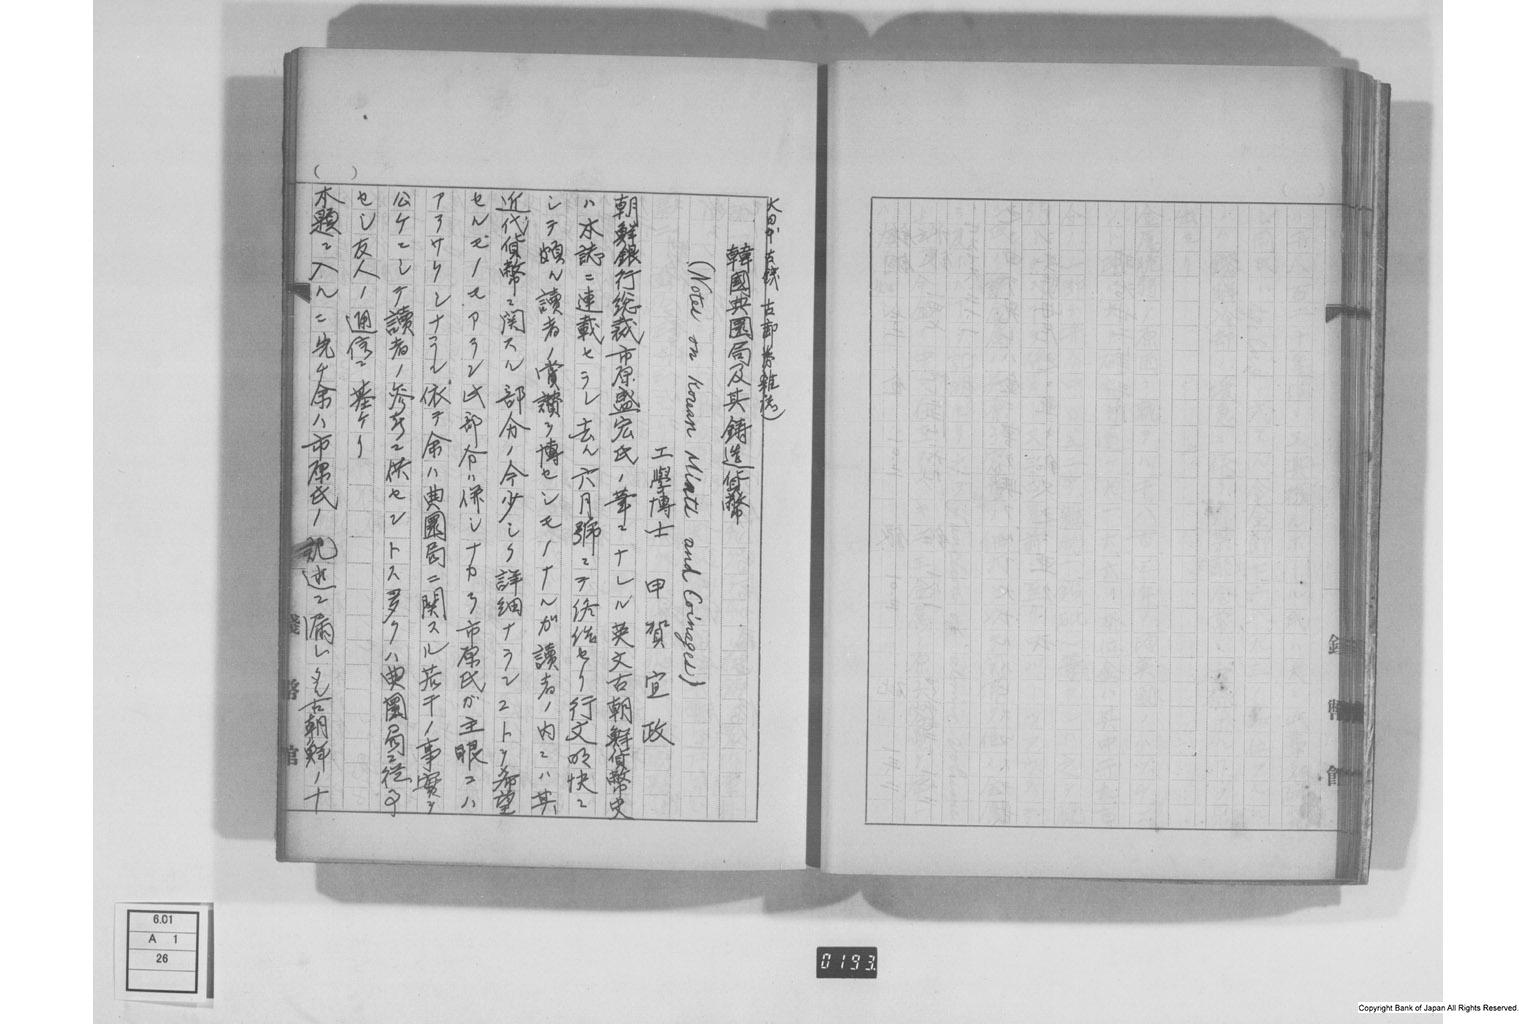 韓國典圜局及其鋳造貨幣
(Notes on Korean Mints and Coinages)
工學博士 甲賀宜政
朝鮮銀行総裁市原盛宏氏ノ筆ニナレル英文古朝鮮貨幣史
ハ本誌ニ連載セラレ去ル六月號ニテ終結セリ行文明快ニ
シテ頗ル讀者ノ賞讃ヲ博セシモノナルガ讀者ノ内ニハ其
近代貨幣ニ関スル部分ノ今少シク詳細ナランコトヲ希望
セルモノモアラン此部分ハ併シナカラ市原氏が主眼ニハ
アラサリシナラン依テ余ハ典圜局ニ関スル若干ノ事實ヲ
公ケニシテ讀者ノ參考ニ供セントス多クハ典圜局ニ從事
セシ友人ノ通信ニ基ケリ
本題ニ入ルニ先ケ余ハ市原氏ノ記述ニ漏レタル古朝鮮ノ十
錢幣館
錢幣館
6.01
A 1
26
0193
Copyright Bank of Japan All Rights Reserved.